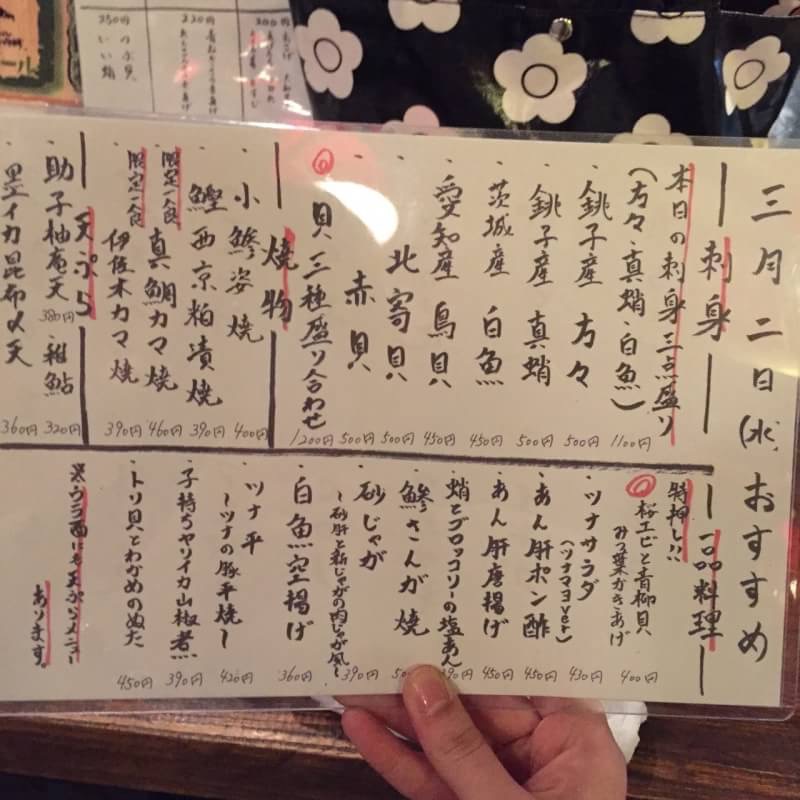 三月二日(水)おすすめ
刺身
本日の刺身三点盛り
(方々・真蛸・白魚)
1100円
・銚子産 方々 500円
・銚子産 真蛸 500円
・茨城産 白魚 450円
・愛知産 鳥貝 450円
・北寄貝 500円
・赤貝 500円
・貝三種盛り合わせ 1200円
焼物
・小鯵姿焼 400円
・鰹西京粕漬焼 390円
限定一食
・真鯛カマ焼 460円
限定一食
・伊佐木カマ焼 390円
天ぷら
・助子柚庵天 380円
・稚鮎 320円
・墨イカ昆布〆天 360円
一品料理
特押し!!
桜エビと青柳貝
みつ葉かきあげ 400円
・ツナサラダ
(ツナマヨver) 430円
・あん肝ポン酢 450円
・あん肝唐揚げ 450円
・蛸とブロッコリーの塩あん 390円
・鯵さんが焼
・砂じゃが
〜砂肝と新じゃがの肉じゃが風〜 390円
・白魚空揚げ 360円
・ツナ平
〜ツナの豚平焼〜 420円
・子持ちヤリイカ山椒煮 390円
・トリ貝とわかめのぬた 450円
※ウラ面にも天ぷらメニュー
あります。
250円
つぶ貝